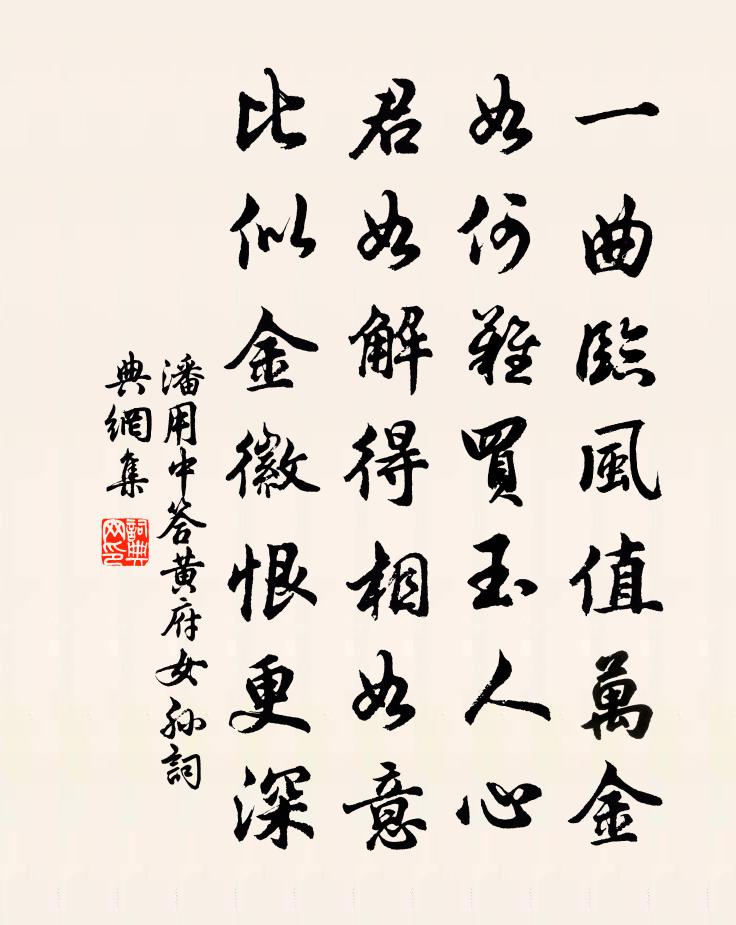 一曲臨風值萬金
如何難買玉人心
君如解得相如意
比似金徽恨更深
潘用中答黃府女孫詞
典網集
詞典
网印